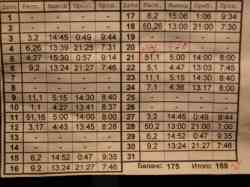 Дни
1 - - - -
2 - - - -
3 3,2 14:45 0:49 9:44
4 6,26 13:39 21:25 7:31
15:30 0:57
6 9,2 13:24 21:27 7:46
7 - - - -
8 - - - -
9 11,1 5:15 14:30 8:40
10 1,1 4:27 13:41 8:37
11 51,16 5:00 14:00 8:00
12 3,17 4:43 13:45 8:28
13 - - - -
14 - - - -
15 6,2 14:52 0:47
16 9,2 13:24 21:27 7:46
17 8,2 15:06 1:06 9:34
18 50,26 13:00 21:00 7:30
19 - - - -
20
21 51,1 5:00 14:00 8:00
22 5,1 4:47 13:03
23 11,1 5:15 14:30 8:40
24 7,1 4:36 13:17 8:00
25 - - - -
26 - - - -
27 3,2 14:45 0:49 9:44
28 50,2 13:00 21:00 7:30
29 6,2 14:52 0:47 9:35
30 9,2 13:24 21:27 7:46
31
Баланс: 175 Итого: 169